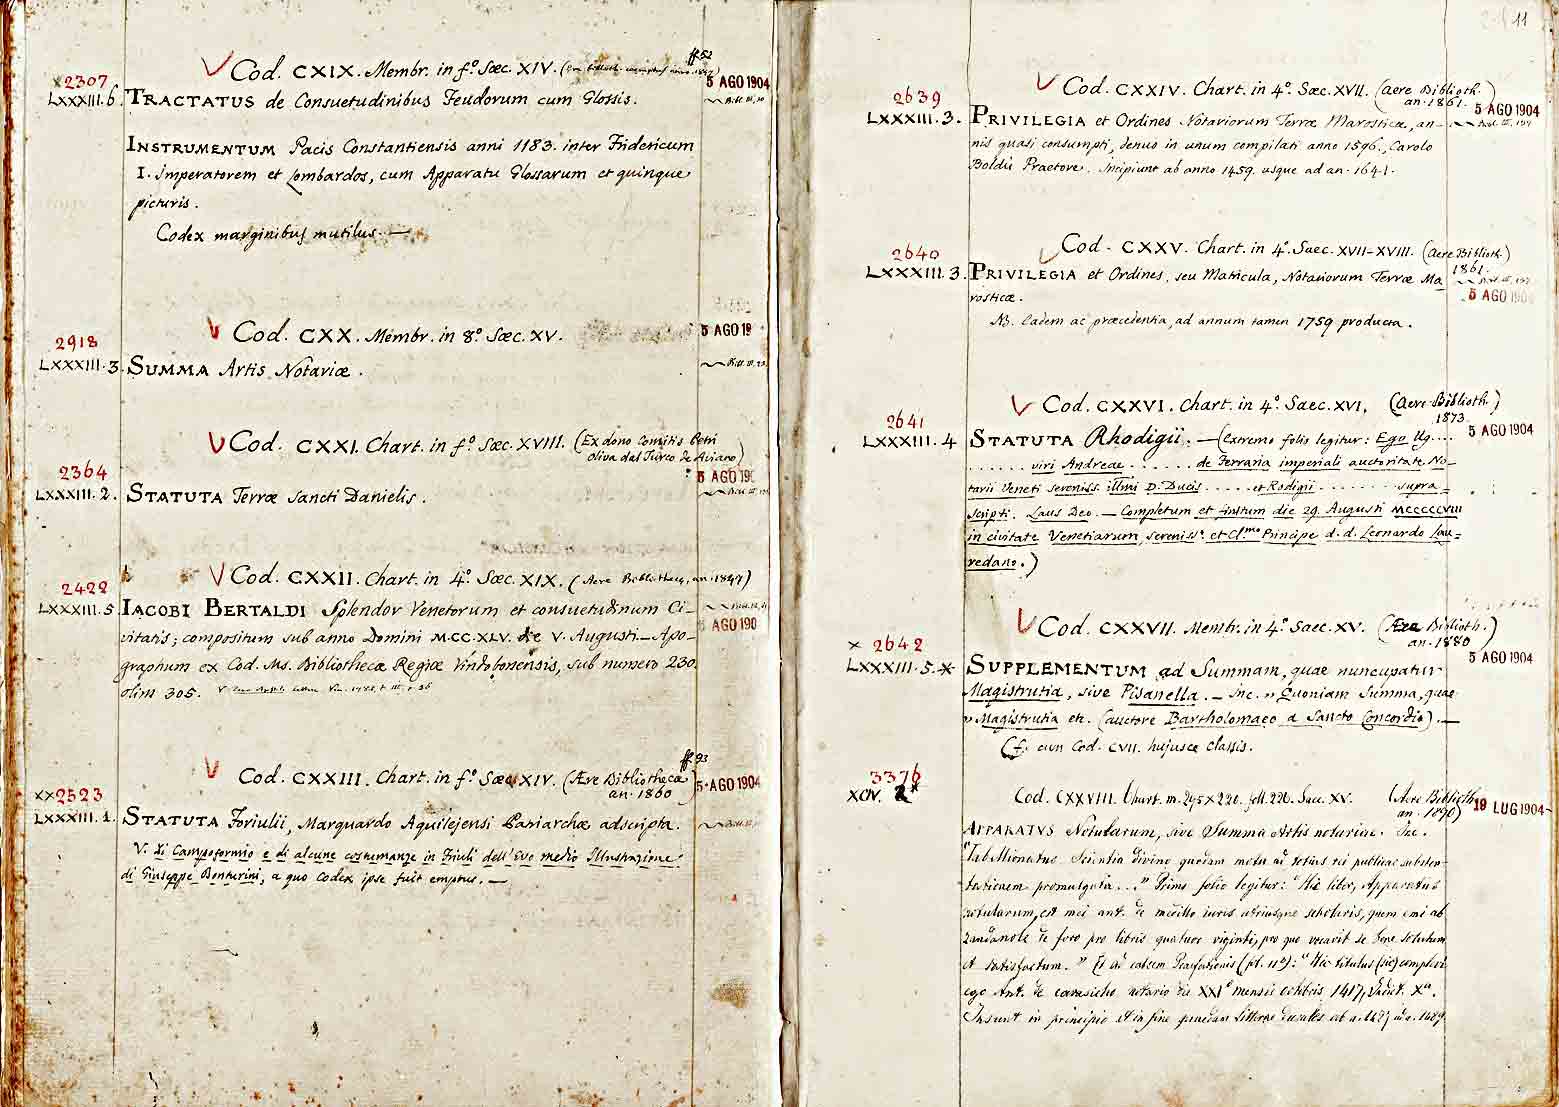 ff. 52
Cod. CXIX. Membr. in f.º Sæc. XIV.
x2307
5 AGO 1904
LXXXIII.6. TRACTATUS de Consuetudinibus Feudorum cum Glossis.
INSTRUMENTUM Pacis Constantiensis anni 1183. inter Fridericum
I. Imperatorem et Lombardos, cum Apparatu Glossarum et quinque
picturis.
Codex marginibus mutilus. —
Cod. CXX. Membr. in 8.º Sæc. XV.
5 AGO 19
2918
LXXXIII.3. SUMMA Artis Notariæ.
Cod. CXXI. Chart. in f.º Sæc. XVIII. (Ex dono Comitis Petri
oliva dal Turco de Aviano)
2364
5 AGO 190
LXXXIII.2. STATUTA Terræ Sancti Danielis.
Cod. CXXII. Chart. in 4.º Sæc. XIX. (Aere Bibliothecæ, an. 1847)
2422
LXXXIII.5 IACOBI BERTALDI Splendor Venetorum et consuetudinum Ci-
5 AGO 190
vitatis; compositum sub anno Domini M.CC.XLV. die V. Augusti — Apo-
graphum ex Cod. Ms. Bibliothecæ Regiæ Vindobonensis, sub numero 230.
olim 305.
ff. 93
Cod. CXXIII. Chart. in f.º Sæc. XIV (Ære Bibliothecæ
an. 1860)
5 AGO 1904
xx2523
LXXXIII.1. STATUTA Foriulii, Marquardo Aquilejensi Patriarchæ adscripta.
V. Di Campoformio e di alcune costumanze in Friuli dell'Evo medio Illustrazione
di Giuseppe Bonturini, a quo Codex ipse fuit emptus. —
11
Cod. CXXIV. Chart. in 4.º Sæc. XVII. (Aere Biblioth.
an. 1861.
2639
5 AGO 1904
LXXXIII.3. PRIVILEGIA et Ordines Notariorum Terræ Marosticæ, an-
nis quasi consumpti, denuo in unum compilati anno 1596., Carolo
Boldù Praetore. Incipiunt ab anno 1459. usque ad an. 1641.
Cod. CXXV. Chart. in 4.º Saec. XVII-XVIII. (Aere Biblioth.
1861.
2640
LXXXIII.3. PRIVILEGIA et Ordines, seu Matricula, Notariorum Terræ Ma
5 AGO 190
rosticæ.
NB. Eadem ac præcedentia, ad annum tamen 1759 producta.
Cod. CXXVI. Chart. in 4.º Saec. XVI. (Aere Biblioth.)
1873
2641
5 AGO 1904
LXXXIII.4 STATUTA Rhodigii. — (Extremo folio legitur: Ego Ug....
....... viri Andreae ....... de Ferraria imperiali auctoritate No-
tarii Veneti sereniss. Illmi D. Ducis ..... et Rodigii ........ supra-
scripti. Laus Deo. — Completum et finitum die 29. Augusti MCCCCCVIII
in civitate Venetiarum, sereniss.º et Cl.mo Principe d. d. Leonardo Lau=
redano.)
Cod. CXXVII. Membr. in 4.º Saec. XV. (Ære Biblioth.)
an. 1880
x 2642
5 AGO 1904
LXXXIII.5.* SUPPLEMENTUM ad Summam, quae nuncupatur
Magistrutia, sive Pisanella. — Inc. " Quoniam Summa, quae
" Magistrutia etc. (auctore Bartholomaeo a Sancto Concordio). —
Cf. cum Cod. CVII. hujusce classis.
3376
XCIV. 2
Cod. CXXVIII. Chart. m. 295x220. ff. 220. Saec. XV. (Aere Biblioth.
an. 1890)
19 LUG 1904
APPARATVS Notularum, sive Summa Artis notariae. Inc.
"Tabellionatus scientia divino quodam motu ad totius rei publicae susten-
tationem promulgata..." Primo folio legitur: "Hic liber, Apparatus
notularum, est mei Ant. de iuris utriusque scholaris, quem emi ab
de foro pro libris quatuor viginti, pro quo vocavit se bene solutum
et satisfactum." Et ad calcem Praefationis (fol. 11º): "Hic titulus (sic) complevi
ego Ant. de notario die XXIº mensis octobris 1417, Indict. Xª.
Insunt in principio et in fine quaedam litterae ducales ab a. ad a. 1489.